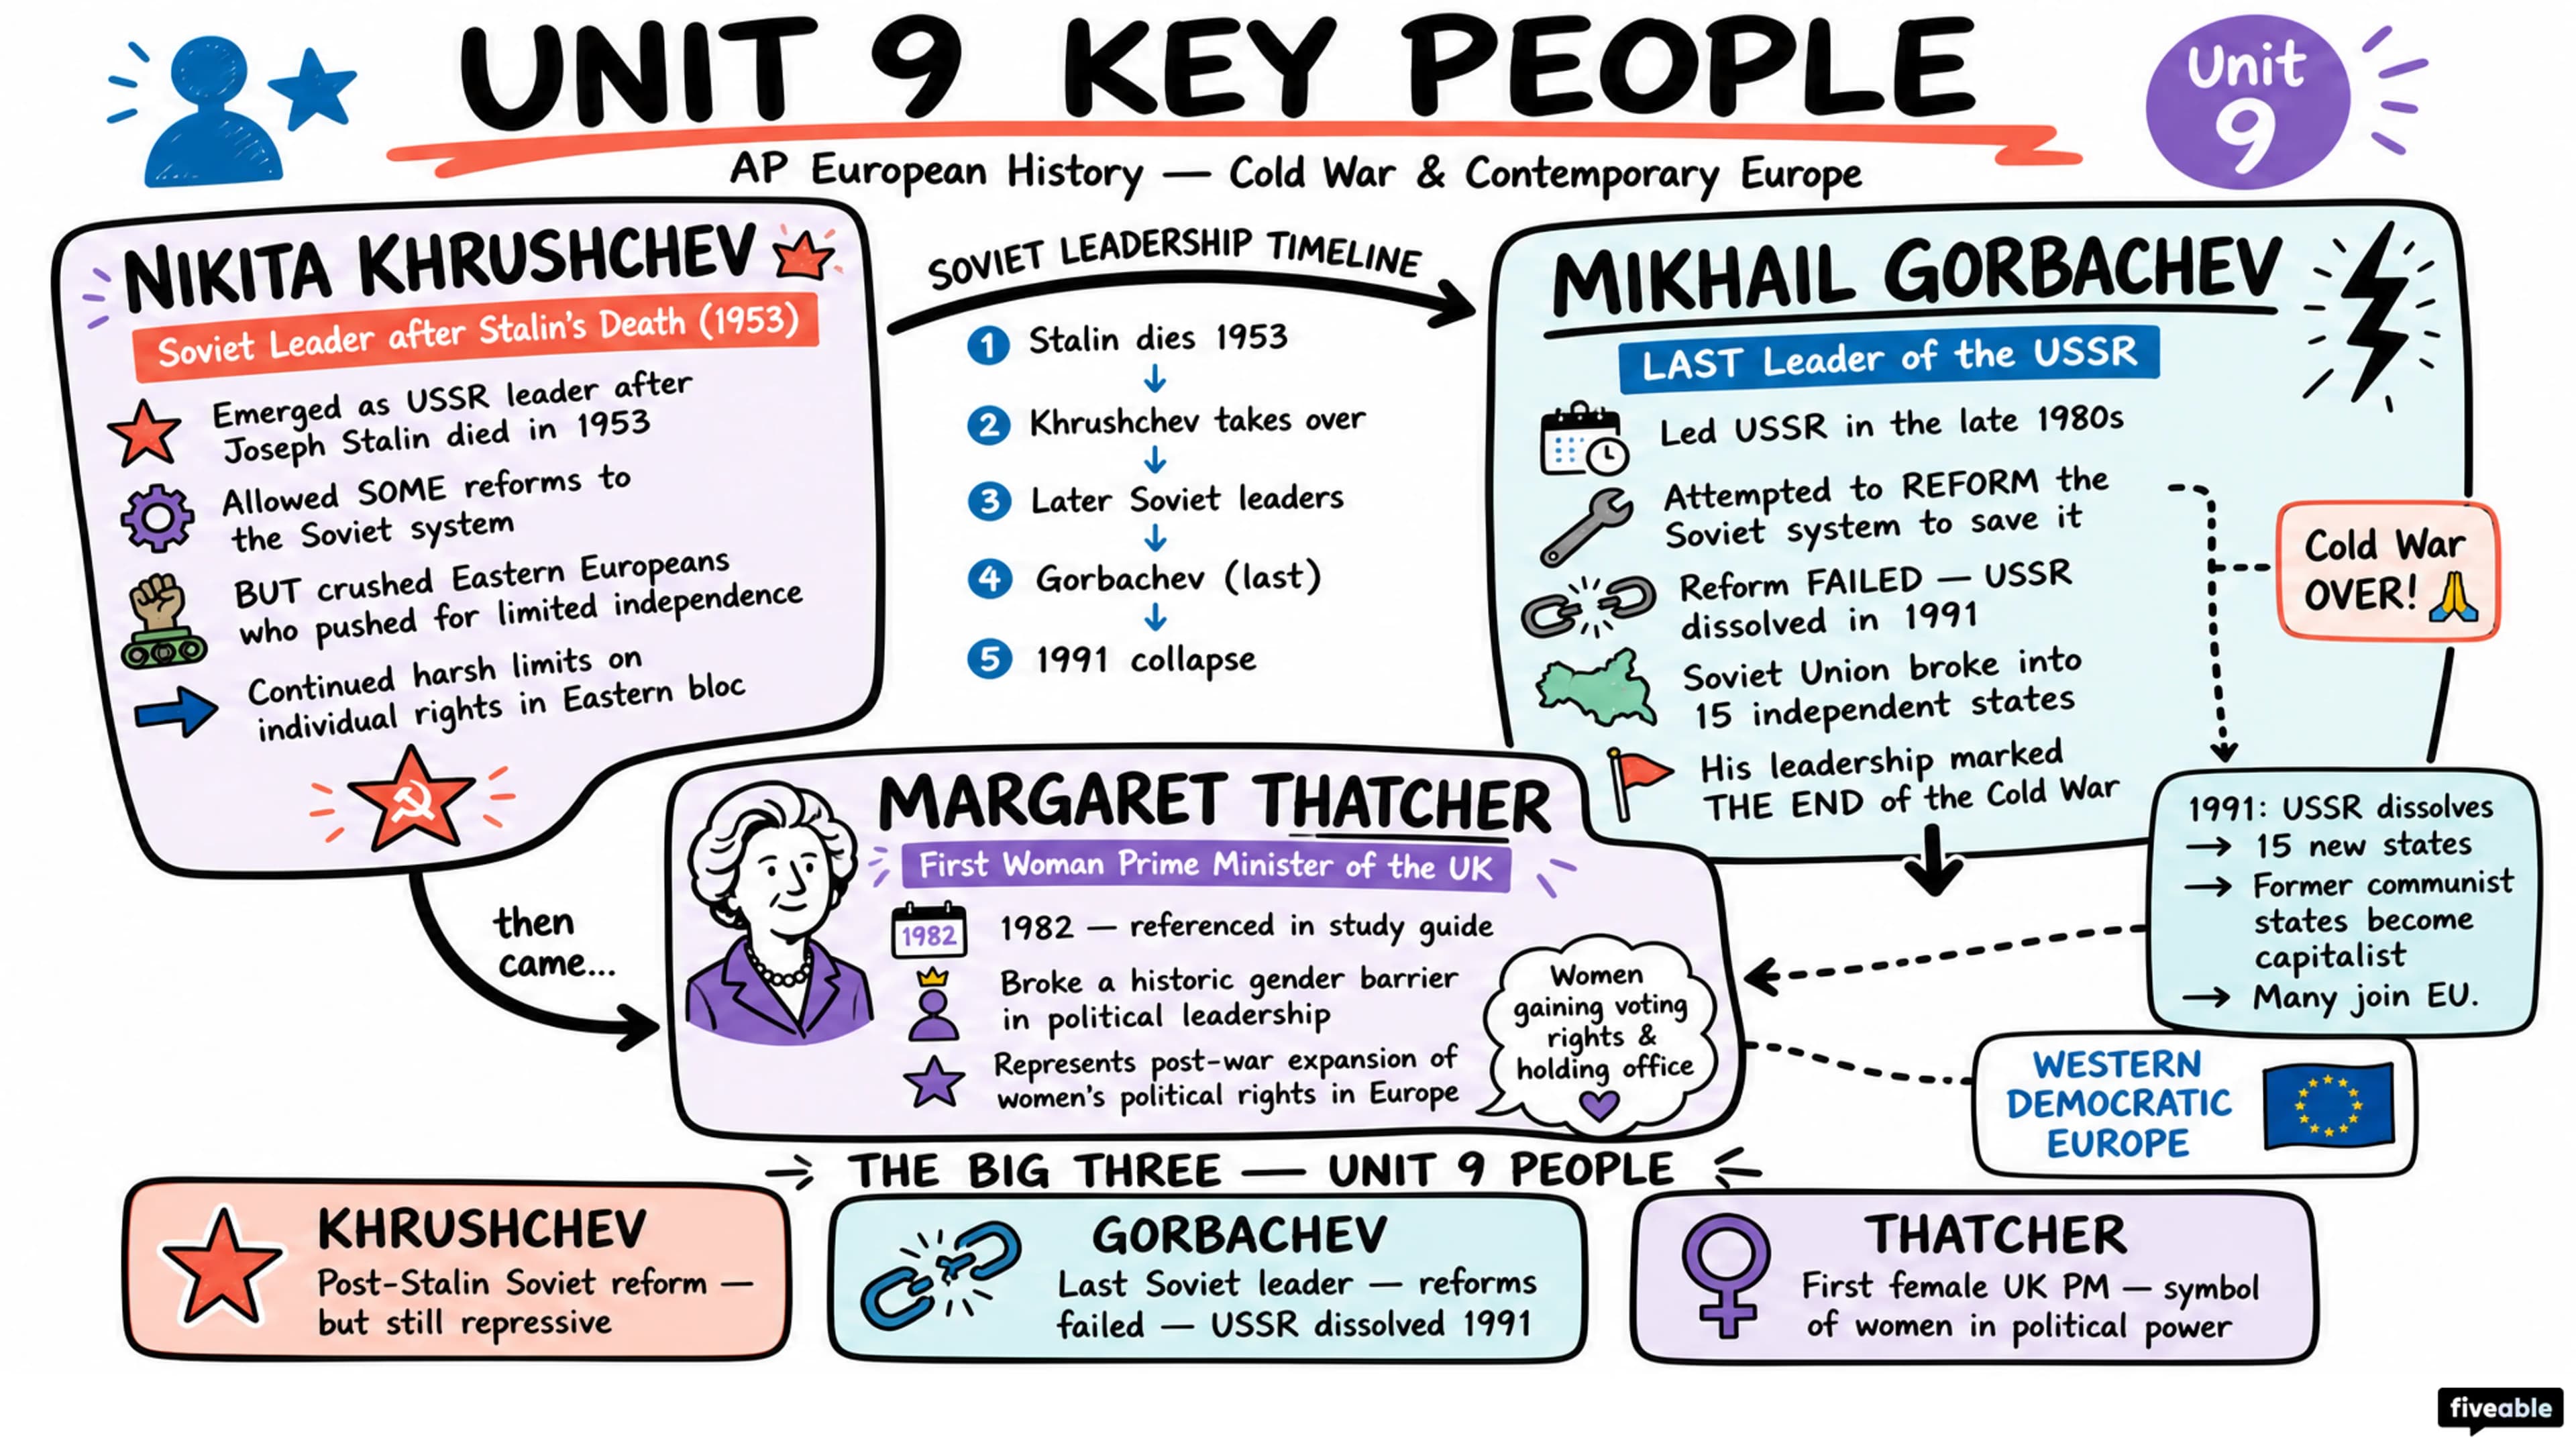 UNIT 9 KEY PEOPLE
Unit
9
AP European History — Cold War & Contemporary Europe
NIKITA KHRUSHCHEV
Soviet Leader after Stalin's Death (1953)
Emerged as USSR leader after
Joseph Stalin died in 1953
Allowed SOME reforms to
the Soviet system
BUT crushed Eastern Europeans
who pushed for limited independence
Continued harsh limits on
individual rights in Eastern bloc
SOVIET LEADERSHIP TIMELINE
1 Stalin dies 1953
2 Khrushchev takes over
3 Later Soviet leaders
4 Gorbachev (last)
5 1991 collapse
MIKHAIL GORBACHEV
LAST Leader of the USSR
Led USSR in the late 1980s
Attempted to REFORM the
Soviet system to save it
Reform FAILED — USSR
dissolved in 1991
Soviet Union broke into
15 independent states
His leadership marked
THE END of the Cold War
Cold War
OVER!
1991: USSR dissolves
→ 15 new states
→ Former communist
states become
capitalist
→ Many join EU.
then
came...
MARGARET THATCHER
First Woman Prime Minister of the UK
1982
1982 — referenced in study guide
Broke a historic gender barrier
in political leadership
Represents post-war expansion of
women's political rights in Europe
Women
gaining voting
rights &
holding office
WESTERN
DEMOCRATIC
EUROPE
THE BIG THREE — UNIT 9 PEOPLE
KHRUSHCHEV
Post-Stalin Soviet reform —
but still repressive
GORBACHEV
Last Soviet leader — reforms
failed — USSR dissolved 1991
THATCHER
First female UK PM — symbol
of women in political power
fiveable